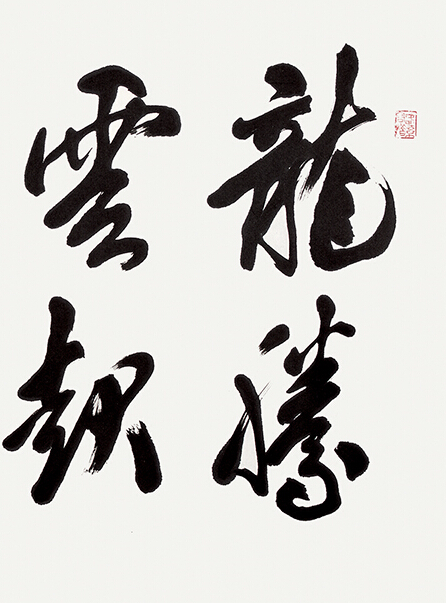 龍騰
雲翔